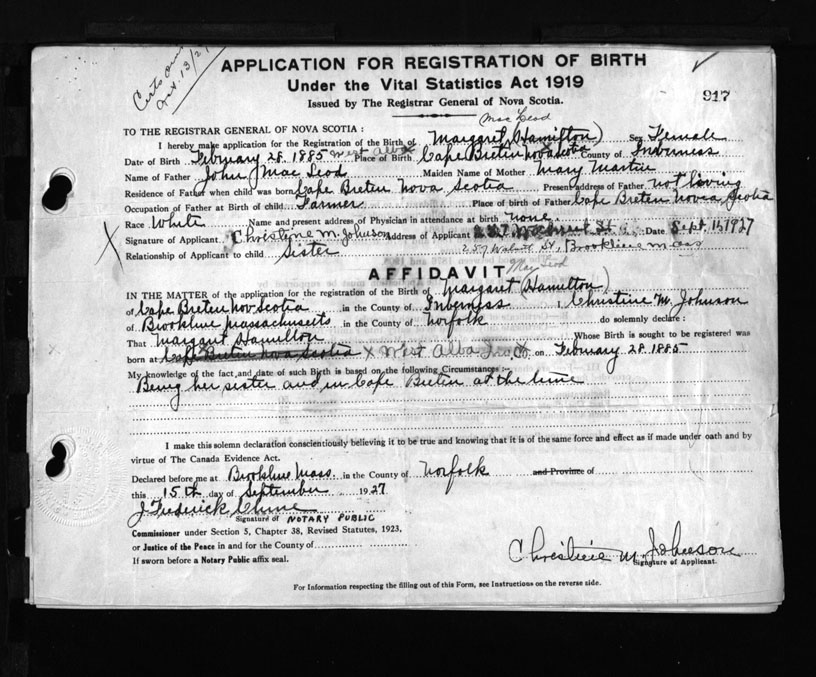 APPLICATION FOR REGISTRATION OF BIRTH
Under the Vital Statistics Act 1919
917
Issued by The Registrar General of Nova Scotia.
Mac Leod
TO THE REGISTRAR GENERAL OF NOVA SCOTIA :
I hereby make application for the Registration of the Birth of Margaret (Hamilton) Sex Female
Date of Birth February 28. 1885 West Alba Place of Birth Cape Breton Nova Scotia County of Inverness
Name of Father John Mac Leod Maiden Name of Mother Mary Martin
Residence of Father when child was born Cape Breton Nova Scotia Present address of Father not living
Occupation of Father at Birth of child Farmer Place of birth of Father Cape Breton Nova Scotia
Race White Name and present address of Physician in attendance at birth none.
Signature of Applicant Christine M. Johnson Address of Applicant Date Sept. 15, 1927
Relationship of Applicant to child Sister St, Brookline Mass
AFFIDAVIT
Leod
IN THE MATTER of the application for the registration of the Birth of Margaret (Hamilton)
of Cape Breton Nov Scotia in the County of Inverness I, Christine M. Johnson
of Brookline Massachusetts in the County of Norfolk do solemnly declare :
That Margaret Hamilton Whose Birth is sought to be registered was
born at Cape Breton Nova Scotia X West Alba on February 28 1885
My knowledge of the fact and date of such Birth is based on the following Circumstances :-
Being her sister and in Cape Breton at the time
I make this solemn declaration conscientiously believing it to be true and knowing that it is of the same force and effect as if made under oath and by
virtue of The Canada Evidence Act.
Declared before me at Brookline Mass. in the County of Norfolk and Province of
this 15th day of September 1927
J Frederick
Signature of NOTARY PUBLIC
Commissioner under Section 5, Chapter 38, Revised Statutes, 1923,
or Justice of the Peace in and for the County of
Christine M. Johnson
If sworn before a Notary Public affix seal. Signature of Applicant.
For Information respecting the filling out of this Form, see Instructions on the reverse side.